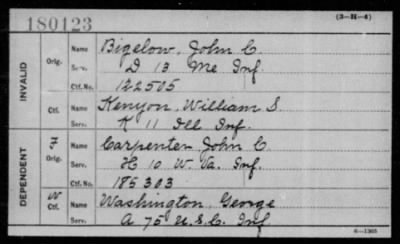 180123
(3—H—4)
INVALID
Orig.
Name Bigelow, John C.
Serv. D 13 Me Inf.
Ctf. No. 122505
Ctf.
Name Kenyon, William S.
Serv. K 11 Ill Inf.
DEPENDENT
F
Orig.
Name Carpenter, John C.
Serv. H 10 W. Va. Inf.
Ctf. No. 185303
W
Ctf.
Name Washington, George
Serv. A 75 U.S.C. Inf.
6—1365